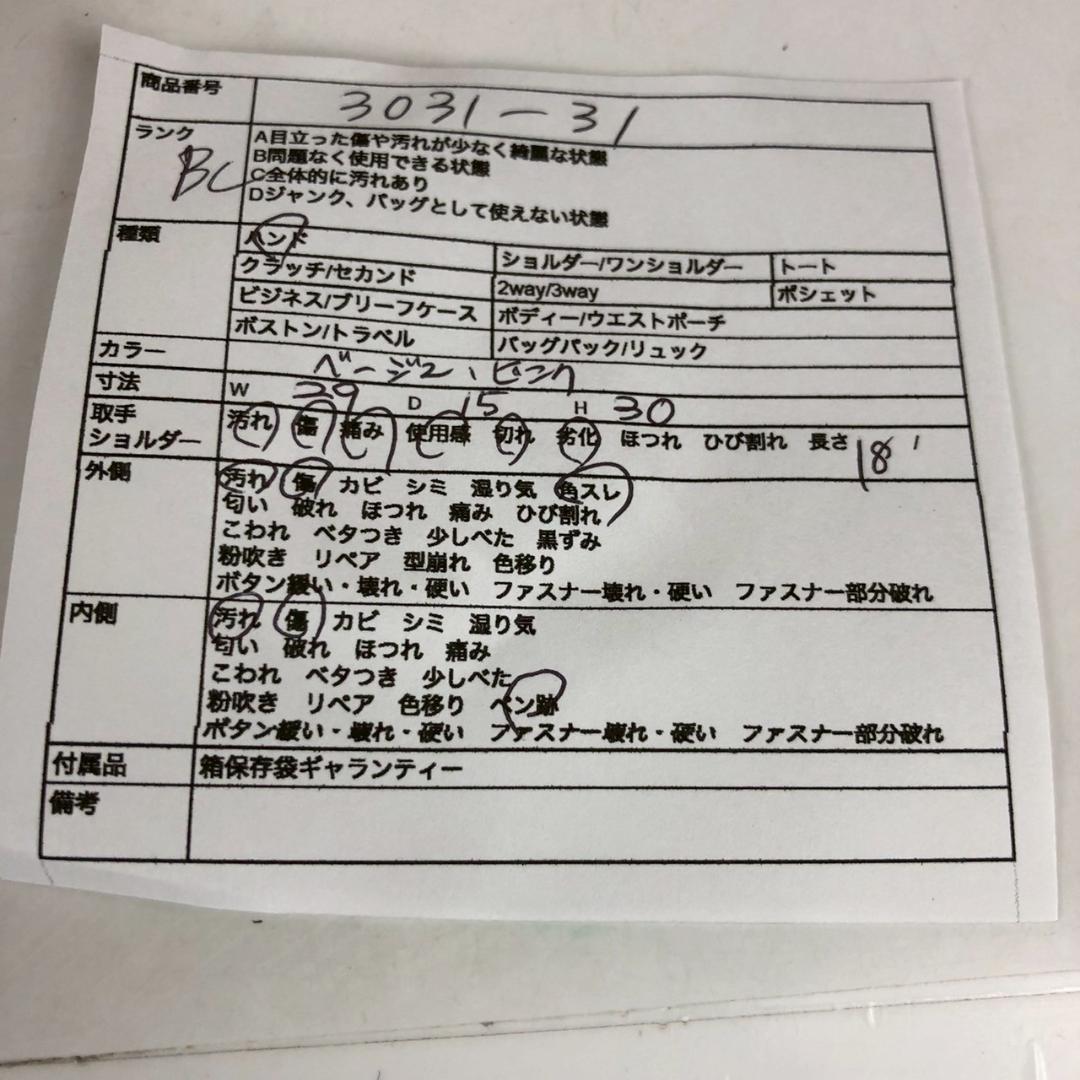 商品番号 3031-31
ランク BC
A目立った傷や汚れが少なく綺麗な状態
B問題なく使用できる状態
C全体的に汚れあり
Dジャンク、バッグとして使えない状態
種類 ハンド
ショルダー/ワンショルダー トート
クラッチ/セカンド
2way/3way ポシェット
ビジネス/ブリーフケース
ボディー/ウエストポーチ
ボストン/トラベル
バッグパック/リュック
カラー ベージュ、ピンク
寸法 W 29 D 15 H 30
取手
ショルダー
汚れ 傷 痛み 使用感 切れ 劣化 ほつれ ひび割れ 長さ 18
外側 汚れ 傷 カビ シミ 湿り気 色スレ
匂い 破れ ほつれ 痛み ひび割れ
こわれ ベタつき 少しべた 黒ずみ
粉吹き リペア 型崩れ 色移り
ボタン緩い・壊れ・硬い ファスナー壊れ・硬い ファスナー部分破れ
内側 汚れ 傷 カビ シミ 湿り気
匂い 破れ ほつれ 痛み
こわれ ベタつき 少しべた
粉吹き リペア 色移り ペン跡
ボタン緩い・壊れ・硬い ファスナー壊れ・硬い ファスナー部分破れ
付属品 箱保存袋ギャランティー
備考